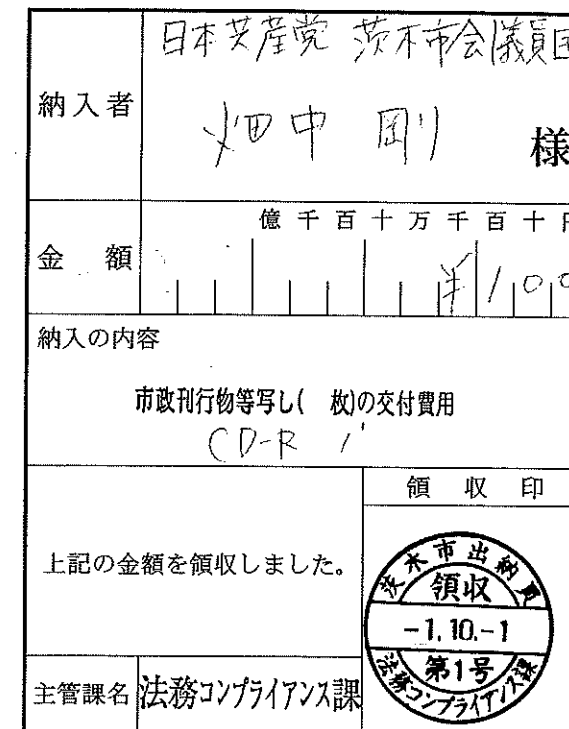 日本共産党 茨木市会議員団
納入者
畑中 剛 様
億千百十万千百十円
金額
¥100
納入の内容
市政刊行物等写し( 枚)の交付費用
CD-R 1
領収印
上記の金額を領収しました。
茨木市出納員
領収
-1.10.-1
第1号
法務コンプライアンス課
主管課名 法務コンプライアンス課